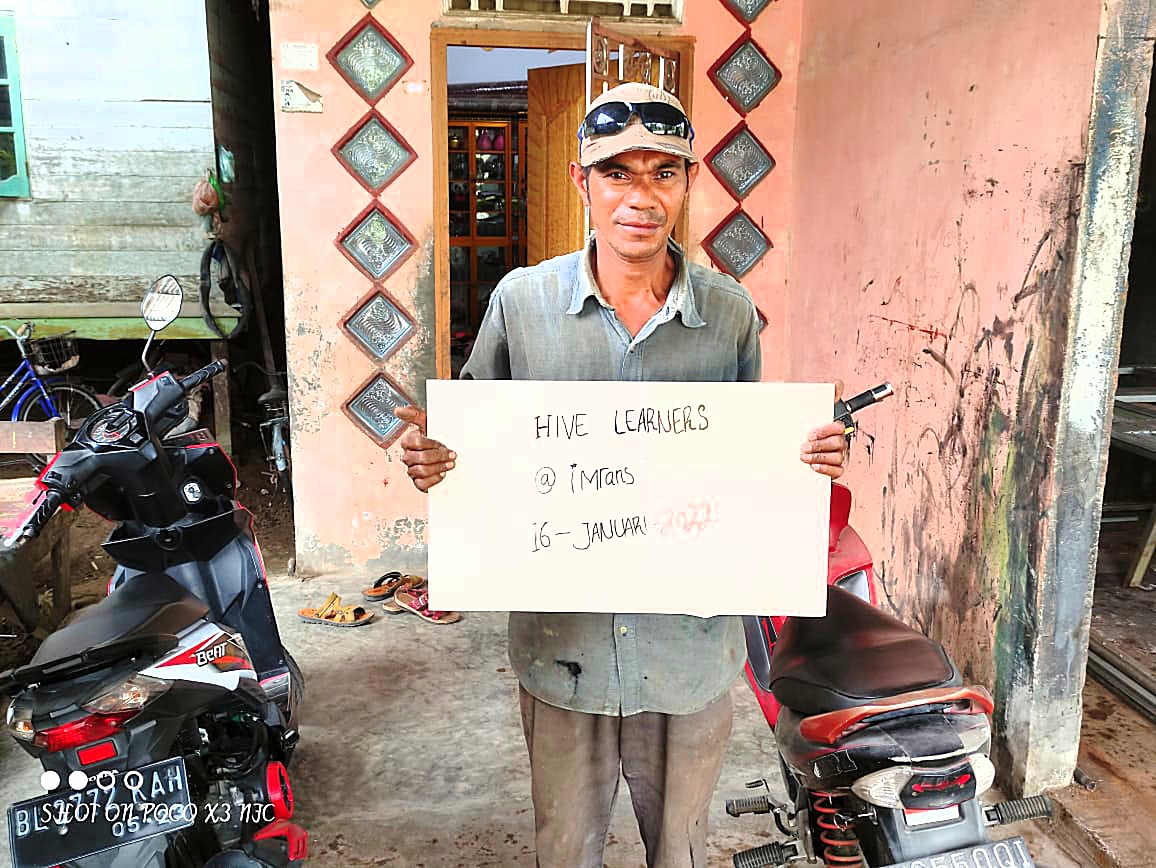 HIVE LEARNERS
@ iMrans
16 - JANUARI - 2022
BEAT
SHOT ON POCO X3 NFC